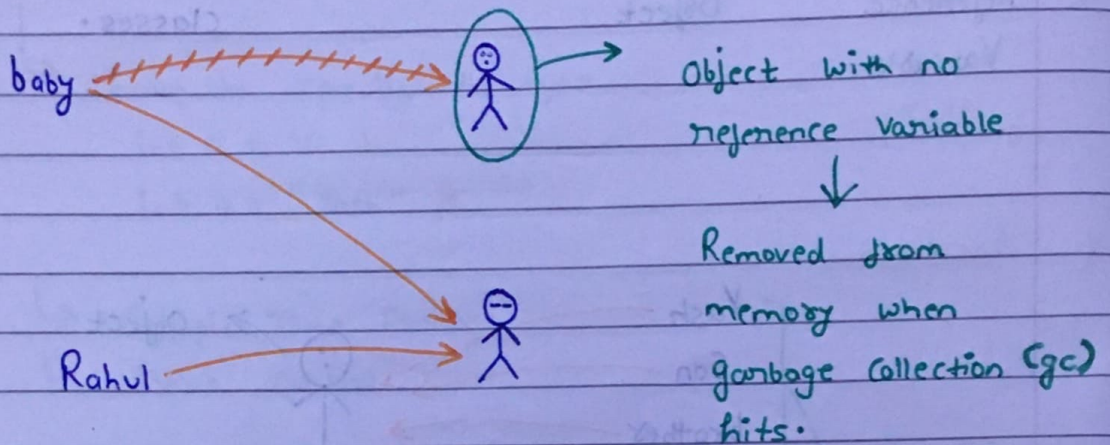 baby
Object with no
reference variable
Removed from
memory when
Rahul
garbage collection (gc)
hits.